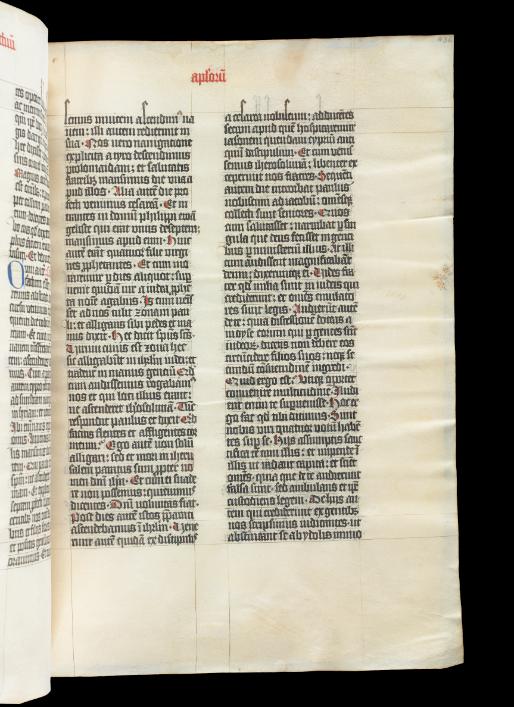 apłorū
lemus inuicem ascendimꝰ na
uem: illi autem redierunt in
sua. Nos vero nauigatione
explicita a tyro descendimus
ptolomaidam: et salutatis
fratribꝫ mansimus die vna a
pud illos. Alia autē die pro
fecti venimus cesareā. Et in
trantes in domū philippi ewā
geliste qui erat vnus de septem:
mansimus apud eum. Huic
autē erāt quatuor filie virgi
nes ꝓphetantes. Et cum mo
raremur ꝑ dies aliquot: sup
uenit quidā vir a iudea ꝓphe
ta noīe agabus. Is cum uēiss
set ad nos tulit zonam pau
li: et alligans sibi pedes et ma
nus dixit. Hec dicit spūs scūs.
Virum cuius est zona hec
sic alligabūt in ihrlm iudei: et
tradent in manus gentiū. Qd
cum audissemus rogabamꝰ
nos et qui loci illius erant:
ne ascenderet iherosolimā. Tūc
respondit paulus et dixit. Qd
facitis flentes et affligentes cor
meum. Ego autē non solū
alligari: sed et mori in iheru
salem paratus sum ꝓpter no
men dn̄i ihu. Et cum ei suade
re non possemus: quieuimꝰ
dicentes. Dn̄i uoluntas fiat.
Post dies autē istos ꝑparati
ascendebamus ī ihrlm. Uene
runt autē quidā ex discipulis
a cesarea nobiscum: adducētes
secum apud quē hospitaremur
iasonem quendam cypriū anti
quū discipulum. Et cum uenis
semus iherosolimā: libenter ex
ceperunt nos fratres. Sequēti
autem die introibat paulus
nobiscum ad iacobū: omnesqꝫ
collecti sunt seniores. Quos
cum salutasset: narrabat ꝑ sin
gula que deus fecisset in genti
bus ꝑ ministeriū illius. At illi
cum audissent magnificabāt
deum: dixeruntqꝫ ei. Uides fra
ter qͦt milia sunt in iudeis qui
crediderunt: et omēs emulato
res sunt legis. Audierūt autē
de te: quia discessionē doceas a
moyse eorum qui ꝑ gentes sūt
iudeoꝝ: dicens non debere eos
circūcidere filios suos: neqꝫ se
cundū cōsuetudinē ingredi.
Quid ergo est: Utiqꝫ oportet
conuenire multitudinē. Audi
ent enim te suꝑuenisse. Hoc er
go fac qd̄ tibi dicimus. Sunt
nobis viri quatuor votū haben
tes suꝑ se. Hijs assumptis sanc
tifica te cum illis: et impende ī
illis ut radant capita: et sciēt
omēs. quia que de te audierunt
falsa sunt: sed ambulas et ipē
custodiens legem. De hijs au
tem qui crediderunt ex gentibꝰ
nos scripsimus iudicantes: ut
abstineant se ab ydolis immo